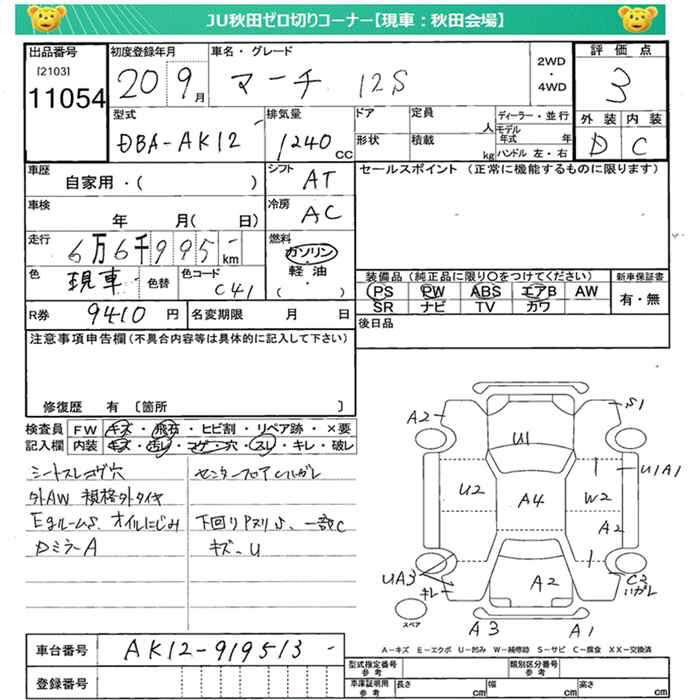 JU秋田ゼロ切りコーナー【現車：秋田会場】
出品番号 初度登録年月 車名・グレード 2WD・4WD 評価点
[2103]
11054 20 9月 マーチ 12S 3
型式 排気量 ドア 定員 人 ディーラー・並行 外装 内装
DBA-AK12 1240 CC 形状 積載 kg モデル年式 年 ハンドル 左・右 D C
車歴 シフト セールスポイント（正常に機能するものに限ります）
自家用・（ ） AT
車検 冷房
年 月（ 日） AC
走行 燃料
6万6千995km ガソリン・軽油
色 現車 色替 色コード C41 （ ）
装備品（純正品に限り○をつけてください） 新車保証書
PS PW ABS エアB AW 有・無
SR ナビ TV カワ
R券 9410円 名変期限 月 日 後日品
注意事項申告欄（不具合内容等は具体的に記入して下さい）
修復歴 有 〔箇所 〕
検査員記入欄 FW キズ・飛石・ヒビ割・リペア跡・×要
内装 キズ・汚レ・コゲ・穴・スレ・キレ・破レ
シートスレコゲ穴 センターフロアCハガレ
外AW 規格外タイヤ
Eまルームs、オイルにじみ 下回りPスリs、一部C
Dミラー A キズ-U
A2 S1
U1
U1A1
U2 A4 W2
A2
UA3 キレ A2 C3 ハガレ
スペア A3 A1
A-キズ E-エクボ U-凹み W-補修跡 S-サビ C-腐食 XX-交換済
車台番号 AK12-919513
登録番号
型式指定番号 参考 類別区分番号 参考
車庫証明用 参考 長さ cm 幅 cm 高さ cm